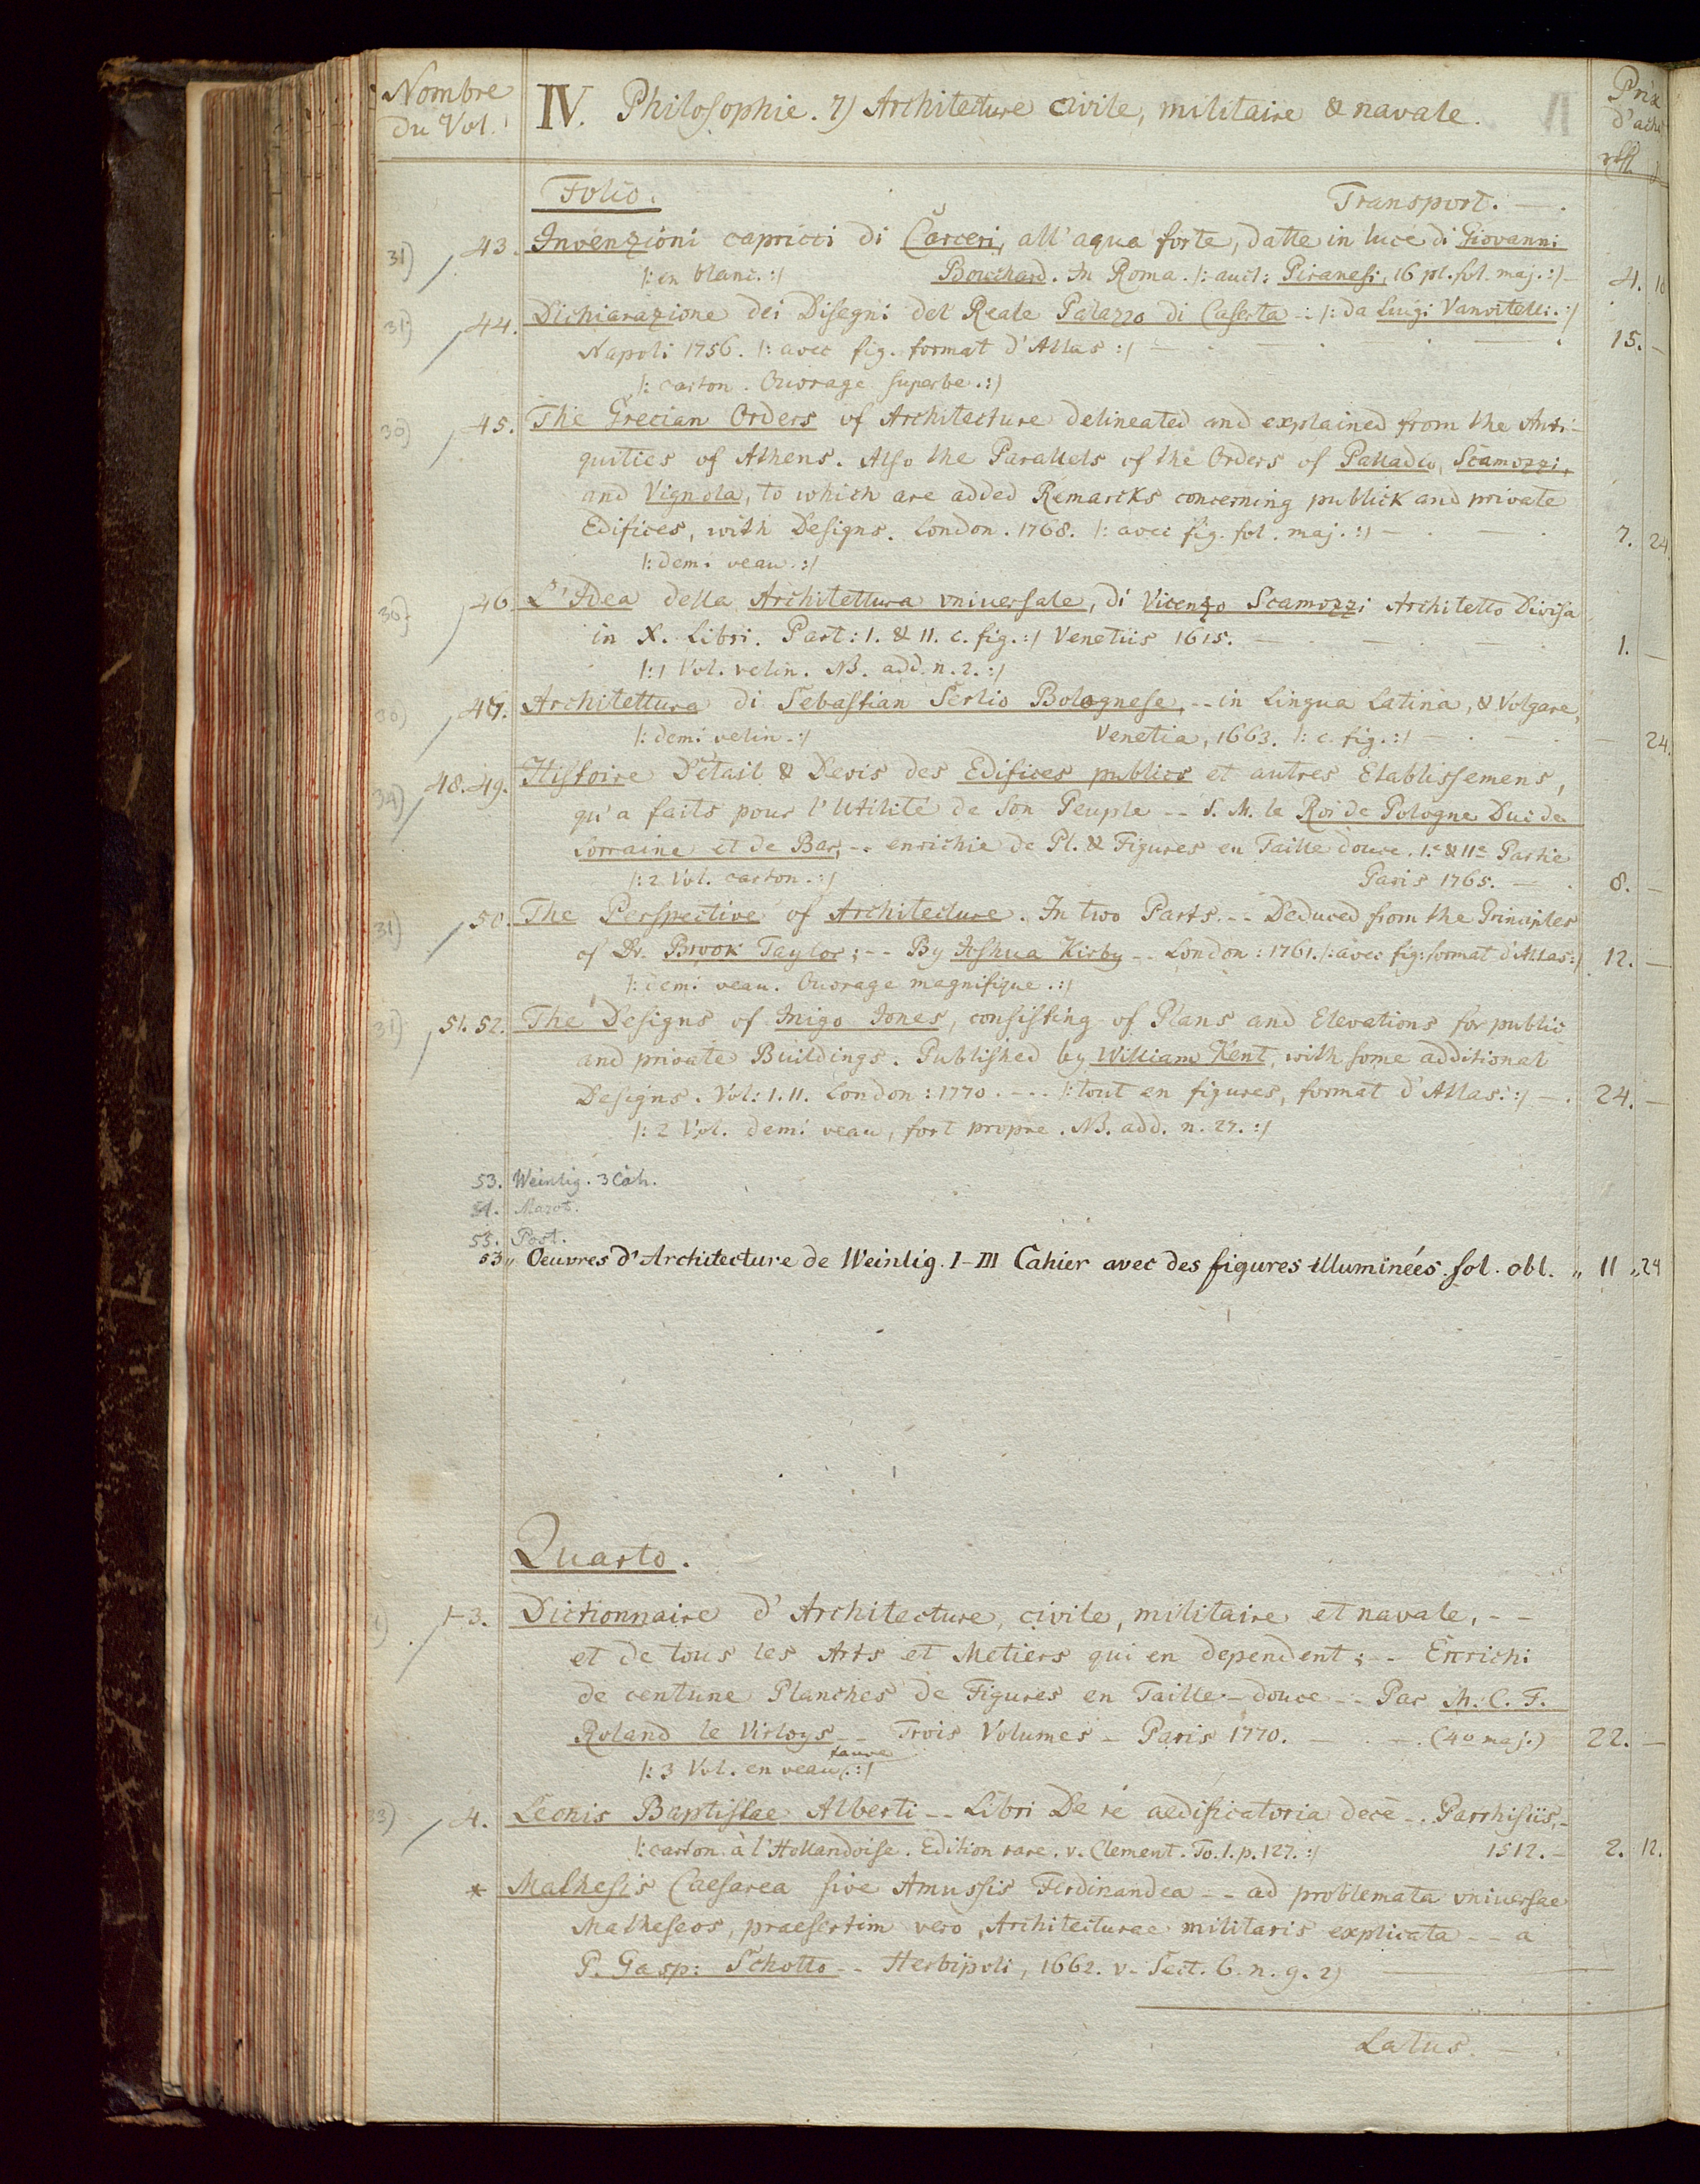 Nombre du Vol.
IV. Philosophie. 7) Architecture civile, militaire & navale.
Prix
Folio. Transport. — .
31) 43. Invenzioni capricci di Carceri, all'aqua forte, datte in luce di Giovanni
/: en blanc. :/ Bouchard. In Roma. /: auct: Piranesi, 16 pl. fol. maj. :/ — 4. 10
31) 44. Dichiarazione dei Disegni del Reale Palazzo di Caserta -: /: da Luigi Vanvitelli. :/
Napoli 1756. /: avec fig. format d'Atlas :/ — . — . — . 15. —
/: carton. Ouvrage superbe. :/
30) 45. The Grecian Orders of Architecture delineated and explained from the Anti-
quities of Athens. Also the Parallels of the Orders of Palladio, Scamozzi,
and Vignola, to which are added Remarcks concerning publick and private
Edifices, with Designs. London. 1768. /: avec fig. fol. maj. :/ — . — . 7. 24.
/: demi veau. :/
30) 46. L'Idea della Architettura vniversale, di Vicenzo Scamozzi Architetto Divisa
in X. Libri. Part: I. & II. c. fig. :/ Venetiis 1615. — . — . — . 1. —
/: 1 Vol. velin. NB. add. n. 2. :/
30) 47. Architettura di Sebastian Serlio Bolognese, -- in Lingua Latina, & Volgare,
/: demi velin. :/ Venetia, 1663. /: c. fig. :/ — . — . — 24.
34) 48. 49. Histoire Détail & Devis des Edifices publics et autres Etablissemens,
qu'a faits pour l'Utilité de son Peuple -- S. M. le Roi de Pologne Duc de
Lorraine et de Bar, -- enrichie de Pl. & Figures en Taille douce. I.e & II.e Partie
/: 2 Vol. carton. :/ Paris 1765. — . 8. —
31) 50. The Perspective of Architecture. In two Parts. -- Deduced from the Principles
of Dr. Brook Taylor; -- By Joshua Kirby -- London: 1761. /: avec fig: format d'Atlas :/ 12. —
/: demi veau. Ouvrage magnifique. :/
31) 51. 52. The Designs of Inigo Jones, consisting of Plans and Elevations for public
and private Buildings. Published by William Kent, with some additional
Designs. Vol: I. II. London: 1770. --- /: tout en figures, format d'Atlas. :/ — . 24. —
/: 2 Vol. demi veau, fort propre. NB. add. n. 27. :/
53. Weinlig. 3 Cah.
54. Marot.
55. Post.
53„ Oeuvres d'Architecture de Weinlig. I–III Cahier avec des figures illuminées. fol. obl. „ 11 „ 24
Quarto.
1-3. Dictionnaire d'Architecture, civile, militaire et navale, --
et de tous les Arts et Metiers qui en dependent; -- Enrichi
de centune Planches de Figures en Taille-douce -- Par M. C. F.
Roland le Virloys -- Trois Volumes – Paris 1770. — . — . (4o maj.) 22. —
/: 3 Vol. en veau fauve. :/
33) 4. Leonis Baptistae Alberti -- Libri De re aedificatoria decē -. Parrhisiis, -
/: carton à l'Hollandoise. Edition rare. v. Clement. To. I. p. 127. :/ 1512. – 2. 12.
* Mathesis Caesarea sive Amussis Ferdinandea -- ad problemata vniversae
Matheseos, praesertim vero, Architecturae militaris explicata -- a
P. Gasp: Schotto -- Herbipoli, 1662. v. Sect. 6. n. 9. 2)
Latus. — .